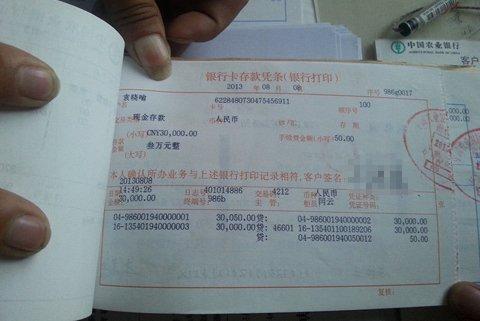 中国农业银行
AGRICULTURAL BANK OF CHINA
客户
银行卡存款凭条(银行打印)
2013 年 08 月 08 日 序号 986g0017
袁晓喻 6228480730475456911 100
名 卡号 顺序号
现金存款 人民币
(小写) CNY30,000.00 手续费金额(小写) 50.00
金额 叁万元整
(大写)
本人确认所办业务与上述银行打印记录相符,客户签名:
20130808
14:49:26 日志号 401014886 4212 人民币
30,000.00 终端号 986b 闫云
04-986001940000001 30,050.00 贷: 04-986001940000002 30,000.00
16-135401100000003 30,000.00 贷: 46601 16-135401100189206 30,000.00
贷: 04-986001940050012 50.00
复核: